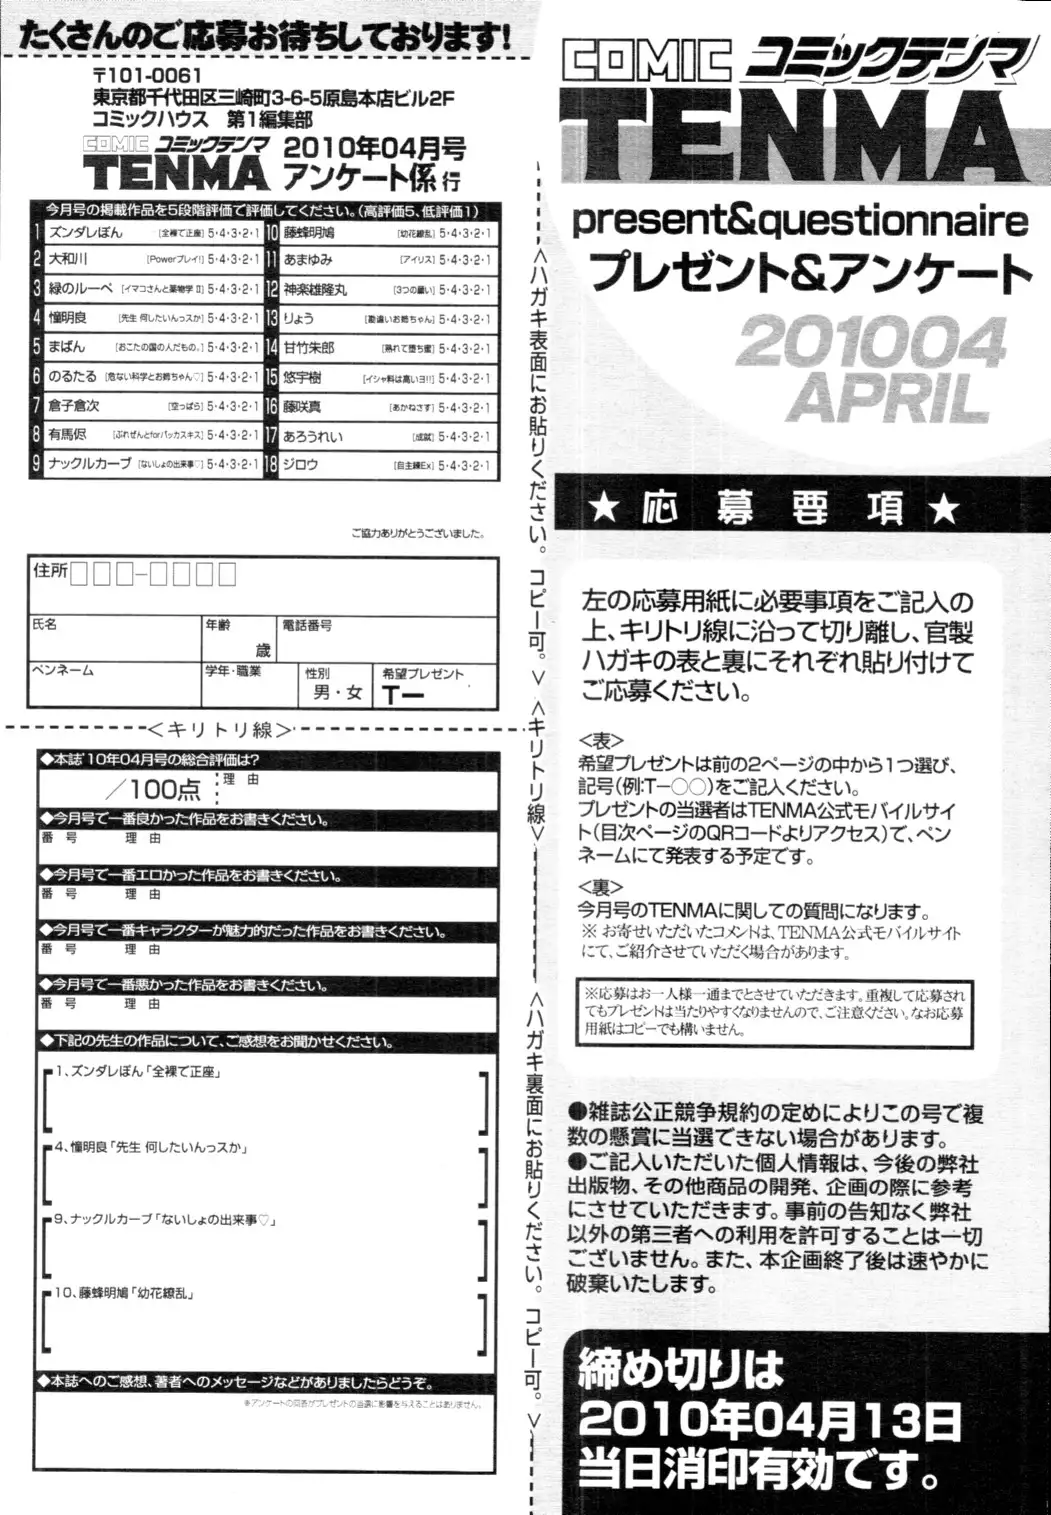 たくさんのご応募お待ちしております!
〒101-0061
東京都千代田区三崎町3-6-5原島本店ビル2F
コミックハウス 第1編集部
COMIC コミックテンマ
TENMA
2010年04月号
アンケート係 行
今月号の掲載作品を5段階評価で評価してください。(高評価5、低評価1)
1 ズンダレぽん [全裸で正座] 5・4・3・2・1
2 大和川 [Powerプレイ!] 5・4・3・2・1
3 緑のルーペ [イマコさんと薬物学Ⅱ] 5・4・3・2・1
4 憧明良 [先生 何したいんっスか] 5・4・3・2・1
5 まばん [おこたの国の人だもの。] 5・4・3・2・1
6 のるたる [危ない科学とお姉ちゃん♡] 5・4・3・2・1
7 倉子倉次 [空っぽら] 5・4・3・2・1
8 有馬侭 [ぷれぜんとforバッカスキス] 5・4・3・2・1
9 ナックルカーブ [ないしょの出来事♡] 5・4・3・2・1
10 藤蜂明鳩 [幼花繚乱] 5・4・3・2・1
11 あまゆみ [アイリス] 5・4・3・2・1
12 神楽雄隆丸 [3つの願い] 5・4・3・2・1
13 りょう [勘違いお姉ちゃん] 5・4・3・2・1
14 甘竹朱郎 [熟れて堕ち蜜] 5・4・3・2・1
15 悠宇樹 [イシャ料は高いヨ!!] 5・4・3・2・1
16 藤咲真 [あかねさす] 5・4・3・2・1
17 あろうれい [成就] 5・4・3・2・1
18 ジロウ [自主練Ex] 5・4・3・2・1
ご協力ありがとうございました。
住所 □□□-□□□□
氏名 年齢 歳 電話番号
ペンネーム 学年・職業 性別 男・女 希望プレゼント T-
<キリトリ線>
◆本誌'10年04月号の総合評価は?
/100点 理由
◆今月号で一番良かった作品をお書きください。
番号 理由
◆今月号で一番エロかった作品をお書きください。
番号 理由
◆今月号で一番キャラクターが魅力的だった作品をお書きください。
番号 理由
◆今月号で一番悪かった作品をお書きください。
番号 理由
◆下記の先生の作品について、ご感想をお聞かせください。
1、ズンダレぽん「全裸で正座」
4、憧明良「先生 何したいんっスか」
9、ナックルカーブ「ないしょの出来事♡」
10、藤蜂明鳩「幼花繚乱」
◆本誌へのご感想、著者へのメッセージなどがありましたらどうぞ。
※アンケートの回答がプレゼントの当選に影響を与えることはありません。
<ハガキ表面にお貼りください。コピー可。>
<キリトリ線>
<ハガキ裏面にお貼りください。コピー可。>
COMIC コミックテンマ
TENMA
present&questionnaire
プレゼント&アンケート
201004
APRIL
★応募要項★
左の応募用紙に必要事項をご記入の
上、キリトリ線に沿って切り離し、官製
ハガキの表と裏にそれぞれ貼り付けて
ご応募ください。
<表>
希望プレゼントは前の2ページの中から1つ選び、
記号(例:T-○○)をご記入ください。
プレゼントの当選者はTENMA公式モバイルサイ
ト(目次ページのQRコードよりアクセス)で、ペン
ネームにて発表する予定です。
<裏>
今月号のTENMAに関しての質問になります。
※お寄せいただいたコメントは、TENMA公式モバイルサイト
にて、ご紹介させていただく場合があります。
※応募はお一人様一通までとさせていただきます。重複して応募され
てもプレゼントは当たりやすくなりませんので、ご注意ください。なお応募
用紙はコピーでも構いません。
●雑誌公正競争規約の定めによりこの号で複
数の懸賞に当選できない場合があります。
●ご記入いただいた個人情報は、今後の弊社
出版物、その他商品の開発、企画の際に参考
にさせていただきます。事前の告知なく弊社
以外の第三者への利用を許可することは一切
ございません。また、本企画終了後は速やかに
破棄いたします。
締め切りは
2010年04月13日
当日消印有効です。